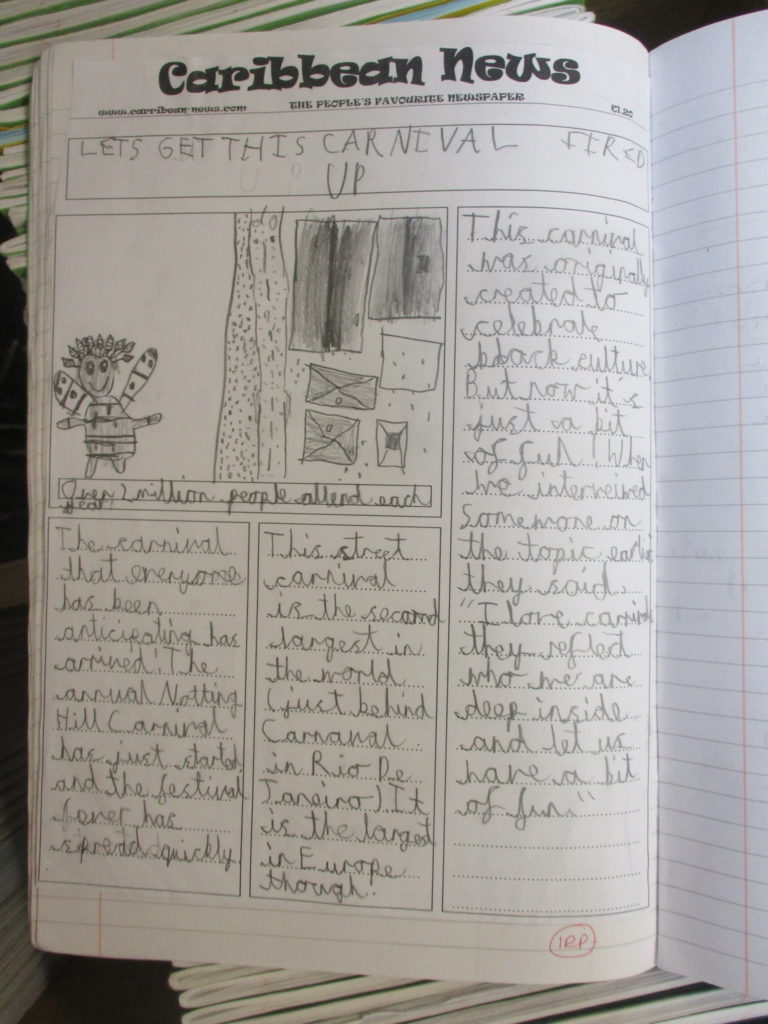 Caribbean News
www.carribean-news.com THE PEOPLE'S FAVOURITE NEWSPAPER £1.20
LETS GET THIS CARNIVAL FIRED
UP
Over 2 million people attend each
year.
The carnival
that everyone
has been
anticipating has
arrived! The
annual Notting
Hill Carnival
has just started
and the festival
fever has
spread quickly.
This street
carnival
is the second
largest in
the world
(just behind
Carnaval
in Rio De
Janeiro) It
is the largest
in Europe
though.
This carnival
was originally
created to
celebrate
black culture.
But now it's
just a bit
of fun! When
we interveiwed
Someone on
the topic
they said.
"I love
they reflect
who we are
deep inside
and let us
have a bit
of fun."
1RP